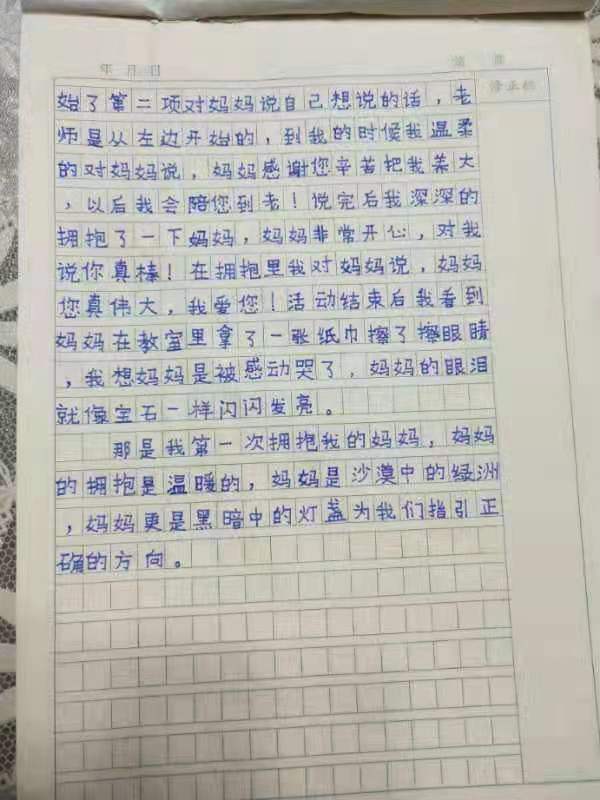 年 月 日
始了第二项对妈妈说自己想说的话，老
师是从左边开始的，到我的时候我温柔
的对妈妈说，妈妈感谢您辛苦把我养大
，以后我会陪您到老！说完后我深深的
拥抱了一下妈妈，妈妈非常开心，对我
说你真棒！在拥抱里我对妈妈说，妈妈
您真伟大，我爱您！活动结束后我看到
妈妈在教室里拿了一张纸巾擦了擦眼睛
，我想妈妈是被感动哭了，妈妈的眼泪
就像宝石一样闪闪发亮。
那是我第一次拥抱我的妈妈，妈妈
的拥抱是温暖的，妈妈是沙漠中的绿洲
，妈妈更是黑暗中的灯盏为我们指引正
确的方向。